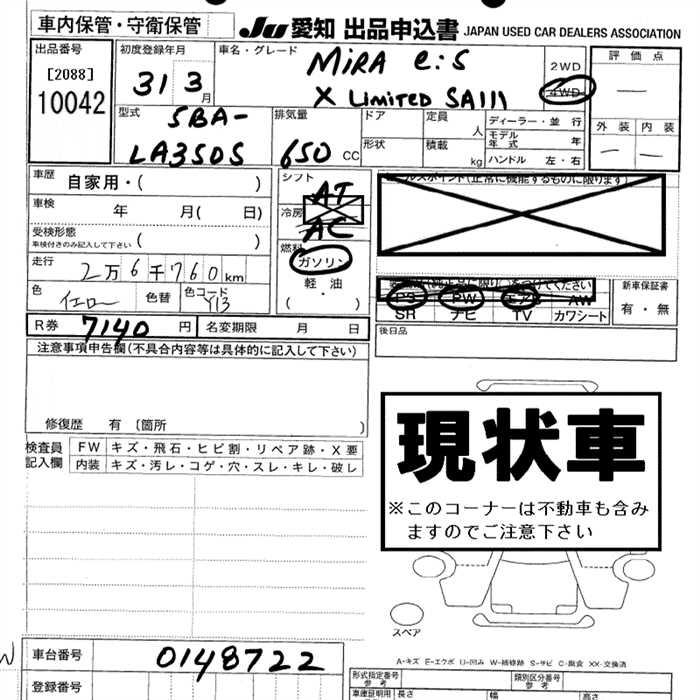 車内保管・守衛保管 JU 愛知 出品申込書 JAPAN USED CAR DEALERS ASSOCIATION
出品番号
[2088]
10042
初度登録年月
31 3 月
車名・グレード
MiRA e:S
X LimiTED SA111
2WD
4WD
評価点
—
外装 内装
— —
型式
5BA-
LA350S
排気量
650 CC
ドア
定員 人
形状
積載 kg
ディーラー・並行
モデル年式 年
ハンドル 左・右
車歴 自家用・( )
車検 年 月( 日)
受検形態
車検付きのみ記入して下さい ( )
走行 2万6千760km
色 イエロー 色替 色コード Y13
シフト AT
冷房 AC
燃料 ガソリン
軽油
( ・ )
R券 7140 円 名変期限 月 日
(正常に機能するものに限ります)
PS PW エアB AW
SR ナビ TV カワシート
新車保証書
有・無
後日品
注意事項申告欄(不具合内容等は具体的に記入して下さい)
修復歴 有 〔箇所 〕
検査員記入欄
FW キズ・飛石・ヒビ割・リペア跡・X要
内装 キズ・汚レ・コゲ・穴・スレ・キレ・破レ
現状車
※このコーナーは不動車も含み
ますのでご注意下さい
スペア
A-キズ E-エクボ U-凹み W-補修跡 S-サビ C-腐食 XX-交換済
車台番号 0148722
登録番号
形式指定番号
参考
類別区分番号
参考
車庫証明用 長さ 幅 高さ